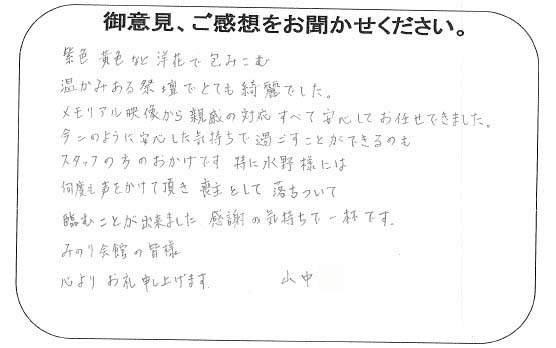 御意見、ご感想をお聞かせください。
紫色 黄色など 洋花で 包みこむ
温かみある祭壇でとても 綺麗でした。
メモリアル映像から 親戚の対応 すべて 安心して お任せできました。
今このように 安心した気持ちで 過ごすことができるのも
スタッフの方のおかげです 特に水野様には
何度も声をかけて頂き 喪主として 落ちついて
臨むことが出来ました 感謝の気持ちで一杯です.
みのり会館の皆様
心より お礼申し上げます. 山中